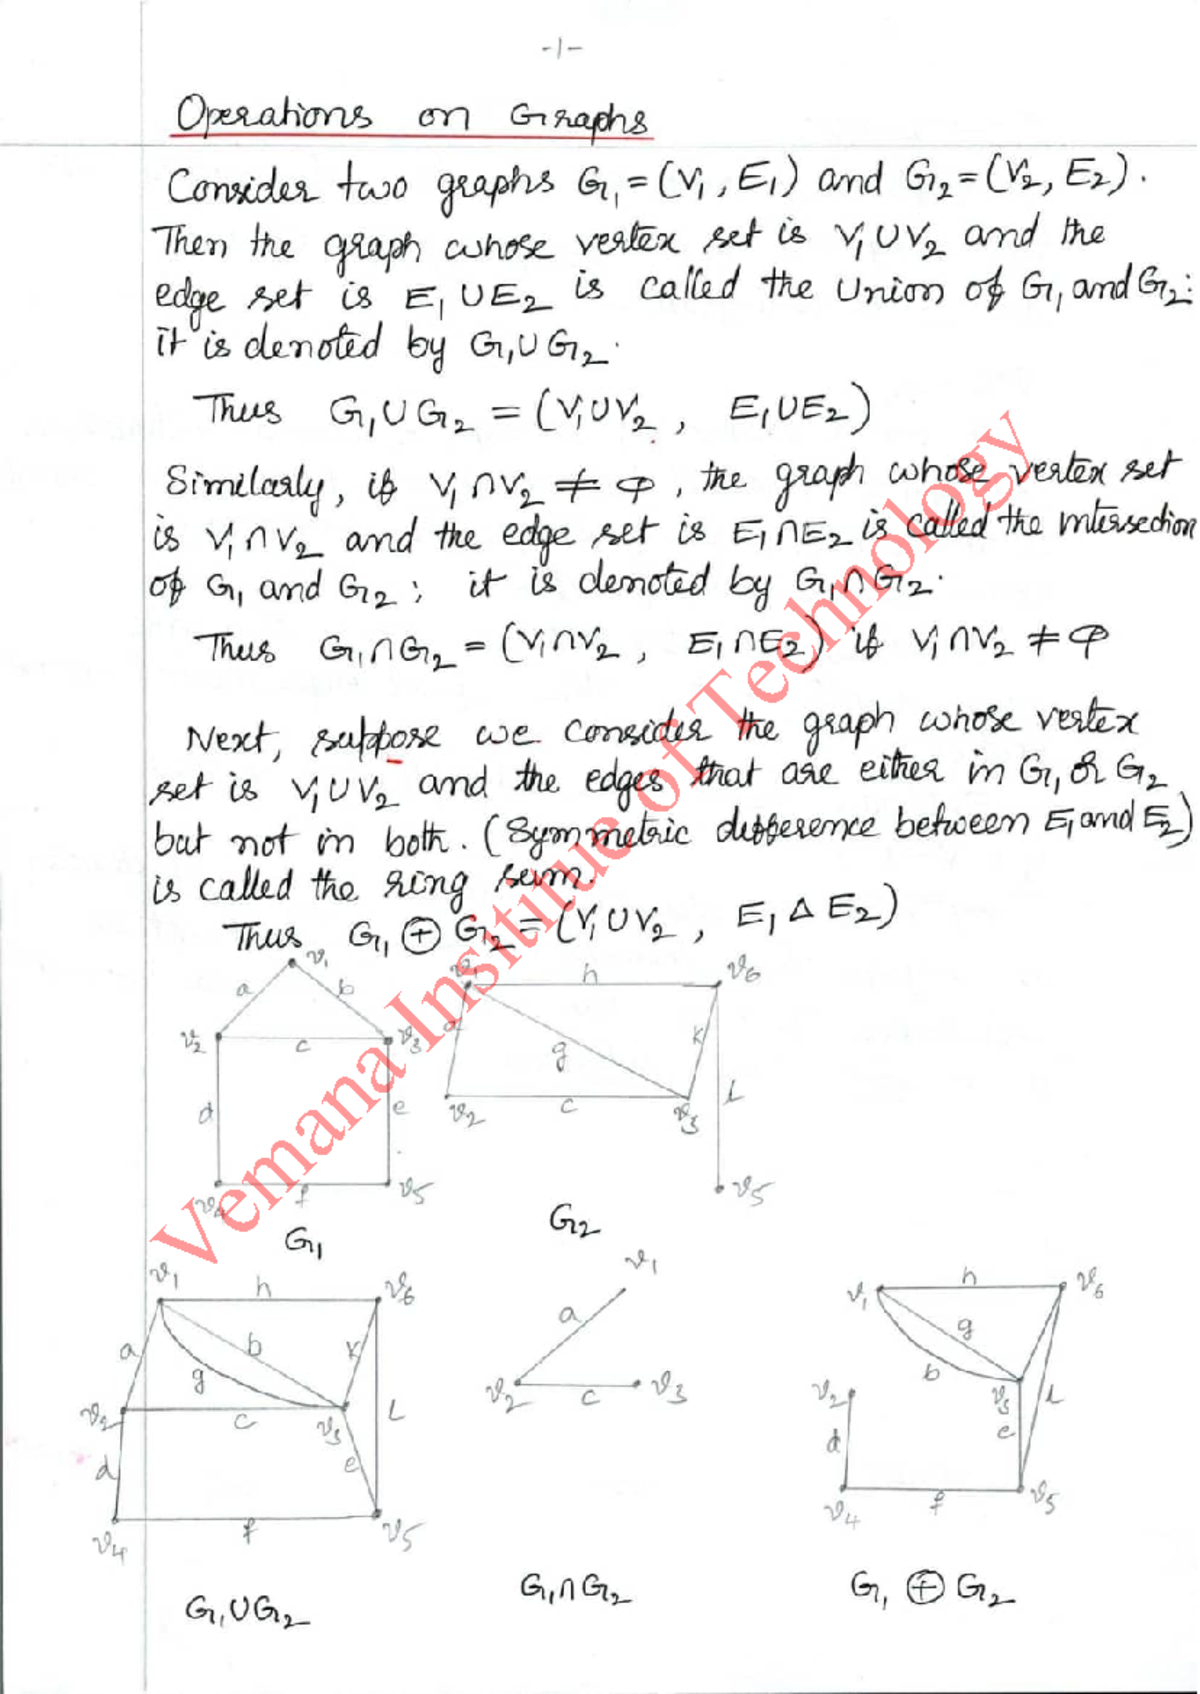 -1-
Operations on Graphs
Consider two graphs G₁ = (V₁, E₁) and G₂ = (V₂, E₂).
Then the graph whose vertex set is V₁ ∪ V₂ and the
edge set is E₁ ∪ E₂ is called the Union of G₁ and G₂:
it is denoted by G₁ ∪ G₂.
Thus G₁ ∪ G₂ = (V₁ ∪ V₂, E₁ ∪ E₂)
Similarly, if V₁ ∩ V₂ ≠ φ, the graph whose vertex set
is V₁ ∩ V₂ and the edge set is E₁ ∩ E₂ is called the intersection
of G₁ and G₂; it is denoted by G₁ ∩ G₂.
Thus G₁ ∩ G₂ = (V₁ ∩ V₂, E₁ ∩ E₂) if V₁ ∩ V₂ ≠ φ
Next, suppose we consider the graph whose vertex
set is V₁ ∪ V₂ and the edges that are either in G₁ or G₂
but not in both. (Symmetric difference between E₁ and E₂)
is called the ring sum.
Thus G₁ ⊕ G₂ = (V₁ ∪ V₂, E₁ Δ E₂)
Vemana Insititue of Technology
v₁
a b
v₂ c v₃
d e
v₄ f v₅
G₁
v₁ h v₆
a g k
v₂ c v₃ L
v₅
G₂
v₁ h v₆
a b k
g
v₂ c v₃ L
d e
v₄ f v₅
G₁ ∪ G₂
v₁
a
v₂ c v₃
G₁ ∩ G₂
v₁ h v₆
g
b
v₂ v₃ L
d e
v₄ f v₅
G₁ ⊕ G₂